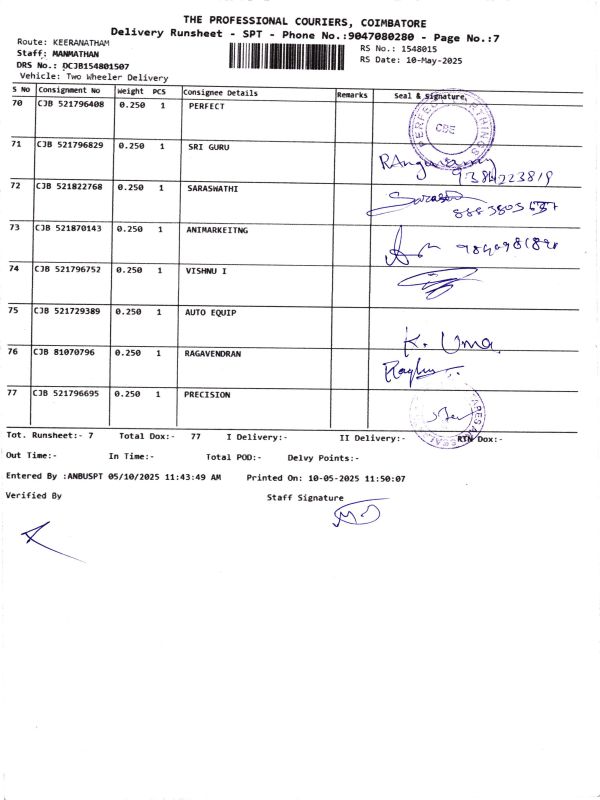 THE PROFESSIONAL COURIERS, COIMBATORE
Delivery Runsheet - SPT - Phone No.:9047080280 - Page No.:7
Route: KEERANATHAM
RS No.: 1548015
Staff: MANMATHAN
RS Date: 10-May-2025
DRS No.: DCJB154801507
Vehicle: Two Wheeler Delivery
S No Consignment No Weight PCS Consignee Details Remarks Seal & Signature
70 CJB 521796408 0.250 1 PERFECT
CBE
71 CJB 521796829 0.250 1 SRI GURU
72 CJB 521822768 0.250 1 SARASWATHI
73 CJB 521870143 0.250 1 ANIMARKEITNG
74 CJB 521796752 0.250 1 VISHNU I
75 CJB 521729389 0.250 1 AUTO EQUIP
K. Uma.
76 CJB 81070796 0.250 1 RAGAVENDRAN
77 CJB 521796695 0.250 1 PRECISION
Tot. Runsheet:- 7 Total Dox:- 77 I Delivery:- II Delivery:- RTN Dox:-
Out Time:- In Time:- Total POD:- Delvy Points:-
Entered By :ANBUSPT 05/10/2025 11:43:49 AM Printed On: 10-05-2025 11:50:07
Verified By Staff Signature